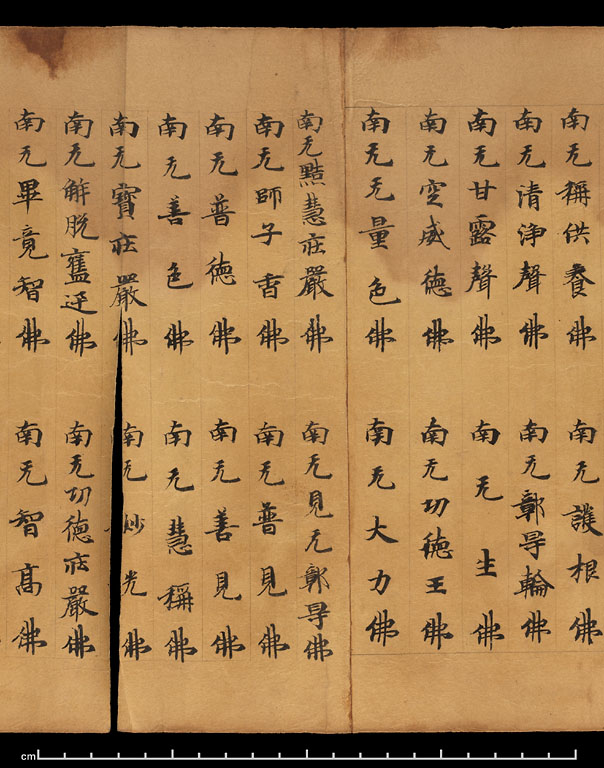 南无稱供養佛 南无護根佛
南无清淨聲佛 南无鄣㝵輪佛
南无甘露聲佛 南无佛
南无空威德佛 南无功德王佛
南无无量色佛 南无大力佛
南无黠慧莊嚴佛 南无見无鄣㝵佛
南无師子香佛 南无普見佛
南无普德佛 南无善見佛
南无善色佛 南无慧稱佛
南无寶莊嚴佛 南无妙光佛
南无解脫奮迅佛 南无功德莊嚴佛
南无畢竟智佛 南无智高佛
cm